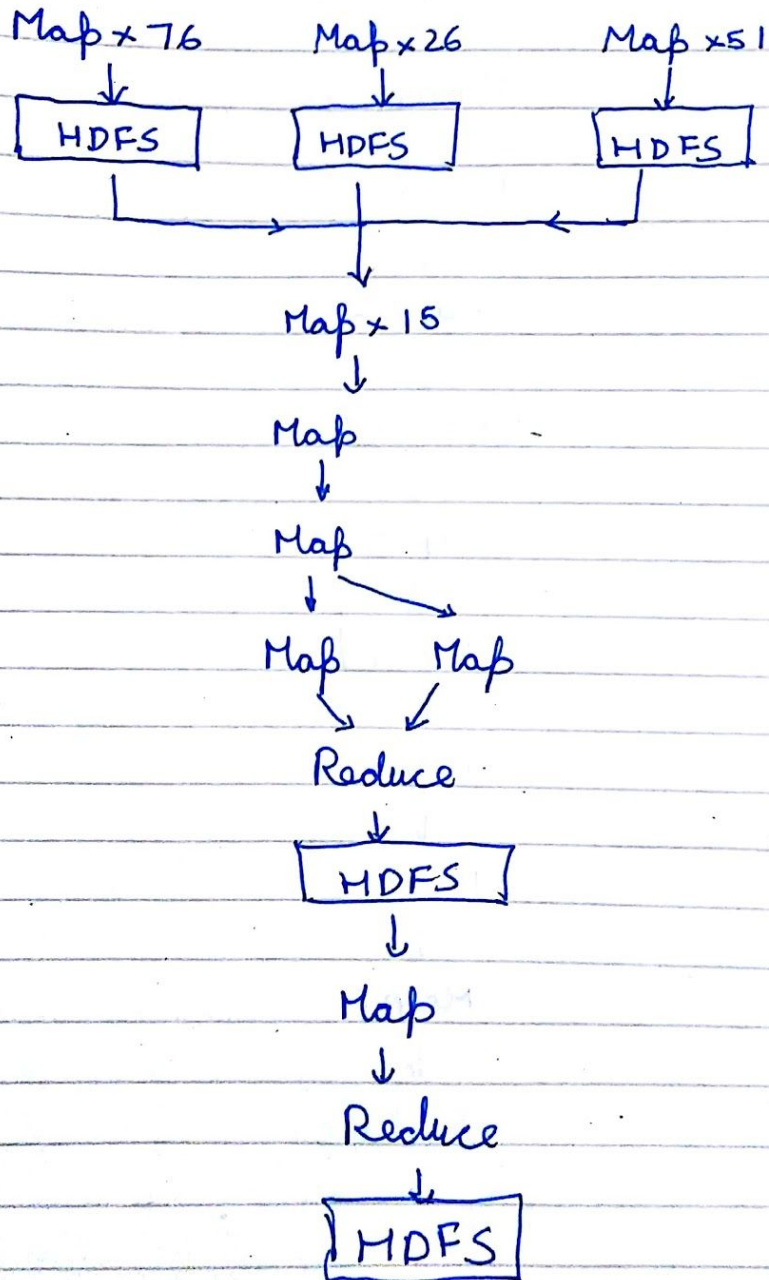 Map x 76 Map x 26 Map x 51
HDFS HDFS HDFS
Map x 15
Map
Map
Map Map
Reduce
HDFS
Map
Reduce
HDFS